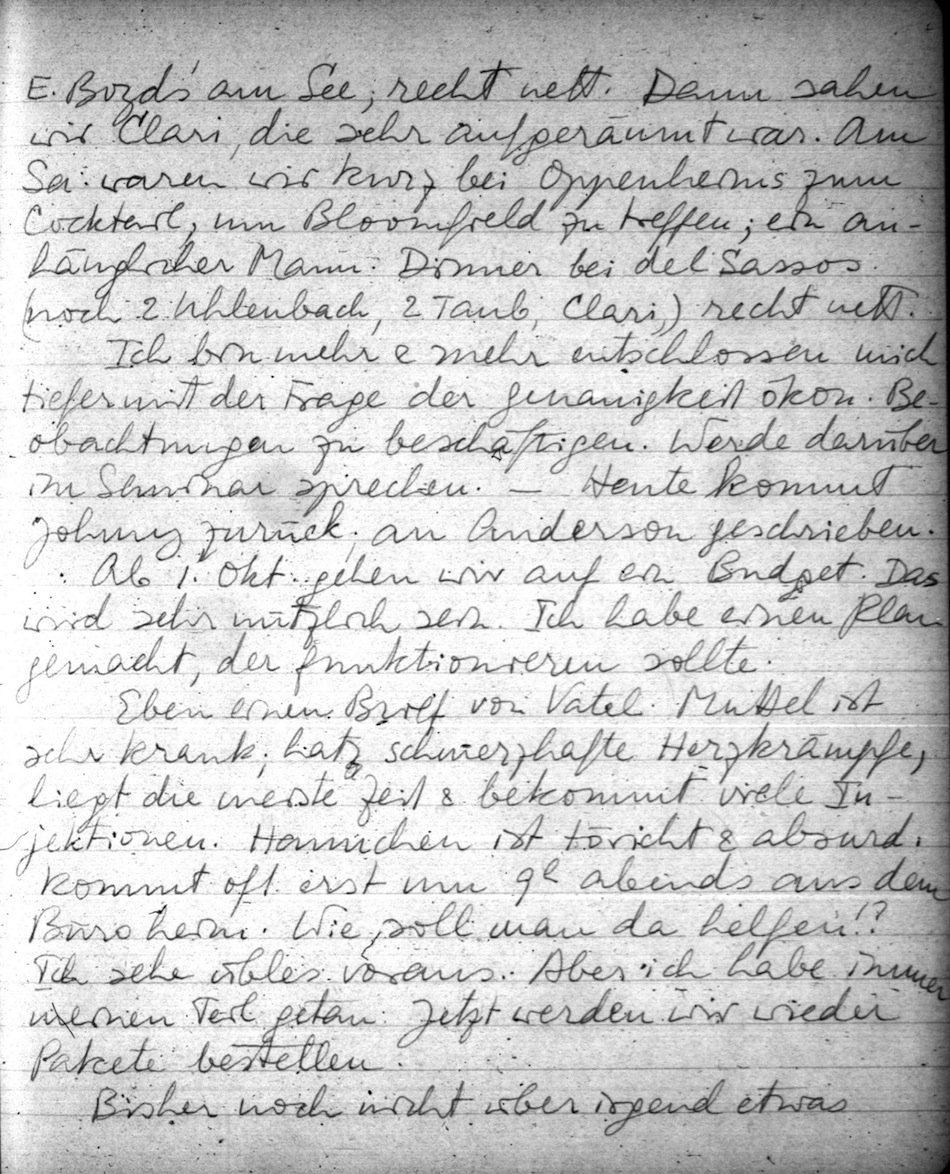 E. Bozd's am See; recht nett. Dann sahen
wir Clari, die sehr aufgeräumt war. Am
Sa. waren wir kurz bei Oppenheims zum
Cocktail, um Bloomfield zu treffen; ein an-
hänglicher Mann. Dinner bei del Sassos.
(noch 2 Uhlenbach, 2 Taub, Clari,) recht nett.
Ich bin mehr & mehr entschlossen mich
tiefer mit der Frage der Genauigkeit ökon. Be-
obachtungen zu beschäftigen. Werde darüber
im Seminar sprechen. — Heute kommt
Johnny zurück; an Anderson geschrieben.
Ab 1. Okt. gehen wir auf ein Budget. Das
wird sehr nützlich sein. Ich habe einen Plan
gemacht, der funktionieren sollte.
Eben einen Brief von Vatel. Muttel ist
sehr krank; hat schmerzhafte Herzkrämpfe,
liegt die meiste Zeit & bekommt viele In-
jektionen. Hannchen ist töricht & absurd.
kommt oft erst um 9h abends aus dem
Büro heim. Wie soll man da helfen!?
Ich sehe übles voraus. Aber ich habe immer
meinen Teil getan. Jetzt werden wir wieder
Pakete bestellen.
Bisher noch nicht über irgend etwas